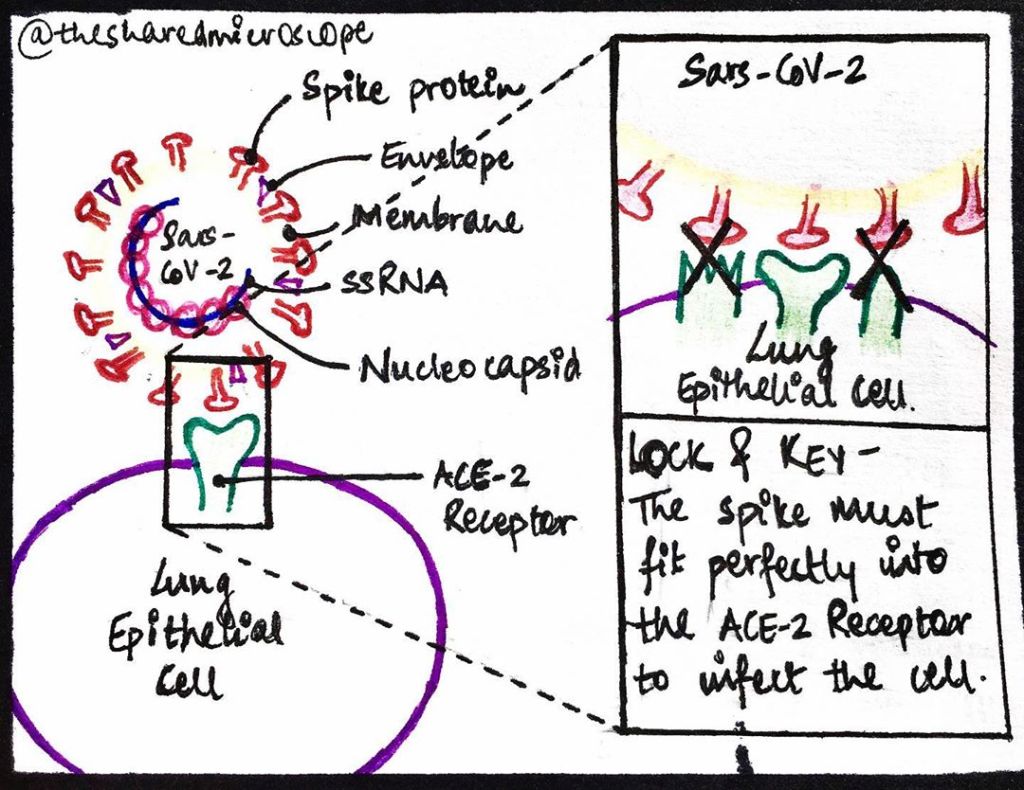 @thesharedmicroscope
Spike protein
Envelope
Membrane
ssRNA
Nucleocapsid
Sars-
CoV-2
ACE-2
Receptor
Lung
Epithelial
Cell
Sars-CoV-2
Lung
Epithelial Cell.
LOCK & KEY -
The spike must
fit perfectly into
the ACE-2 Receptor
to infect the cell.